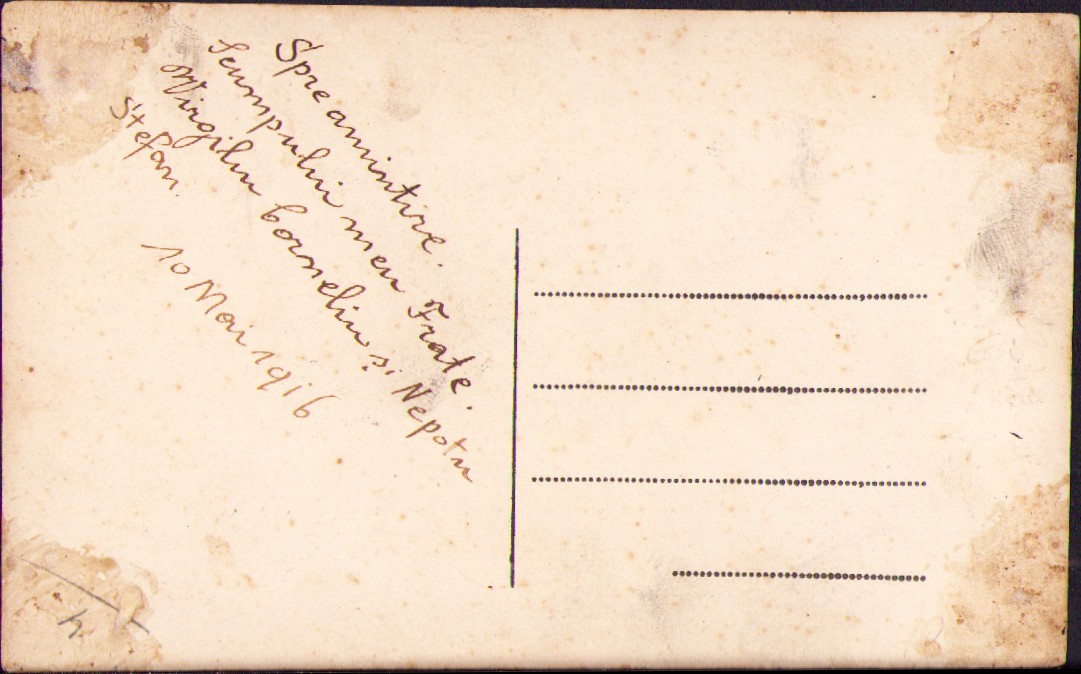 Spre amintire.
Scumpului meu Frate.
Virgiliu Corneliu și Nepotu
Ștefan.
10 Mai 1916